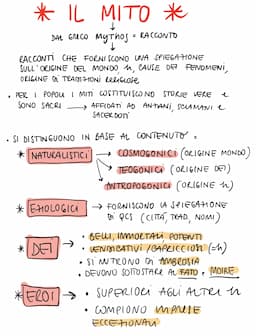 * IL MITO *
DAL GRECO MYTHOS = RACCONTO
RACCONTI CHE FORNISCONO UNA SPIEGAZIONE
SULL'ORIGINE DEL MONDO, h, CAUSE DEI FENOMENI,
ORIGINE DI TRADIZIONI RELIGIOSE
• PER I POPOLI I MITI COSTITUISCONO STORIE VERE E
SONO SACRI → AFFIDATI AD ANZIANI, SCIAMANI E
SACERDOTI
• SI DISTINGUONO IN BASE AL CONTENUTO =
* NATURALISTICI → COSMOGONICI (ORIGINE MONDO)
→ TEOGONICI (ORIGINE DEI)
→ ANTROPOGONICI (ORIGINE h)
* EZIOLOGICI → FORNISCONO LA SPIEGAZIONE
DI QCS (CITTÀ, TRAD, NOMI)
* DEI → • BELLI, IMMORTALI POTENTI
VENDICATIVI/CAPRICCIOSI (=h)
• SI NUTRONO DI AMBROSIA
• DEVONO SOTTOSTARE AL FATO e MOIRE
* EROI → • SUPERIORI AGLI ALTRI h
• COMPIONO IMPRESE
ECCEZIONALI